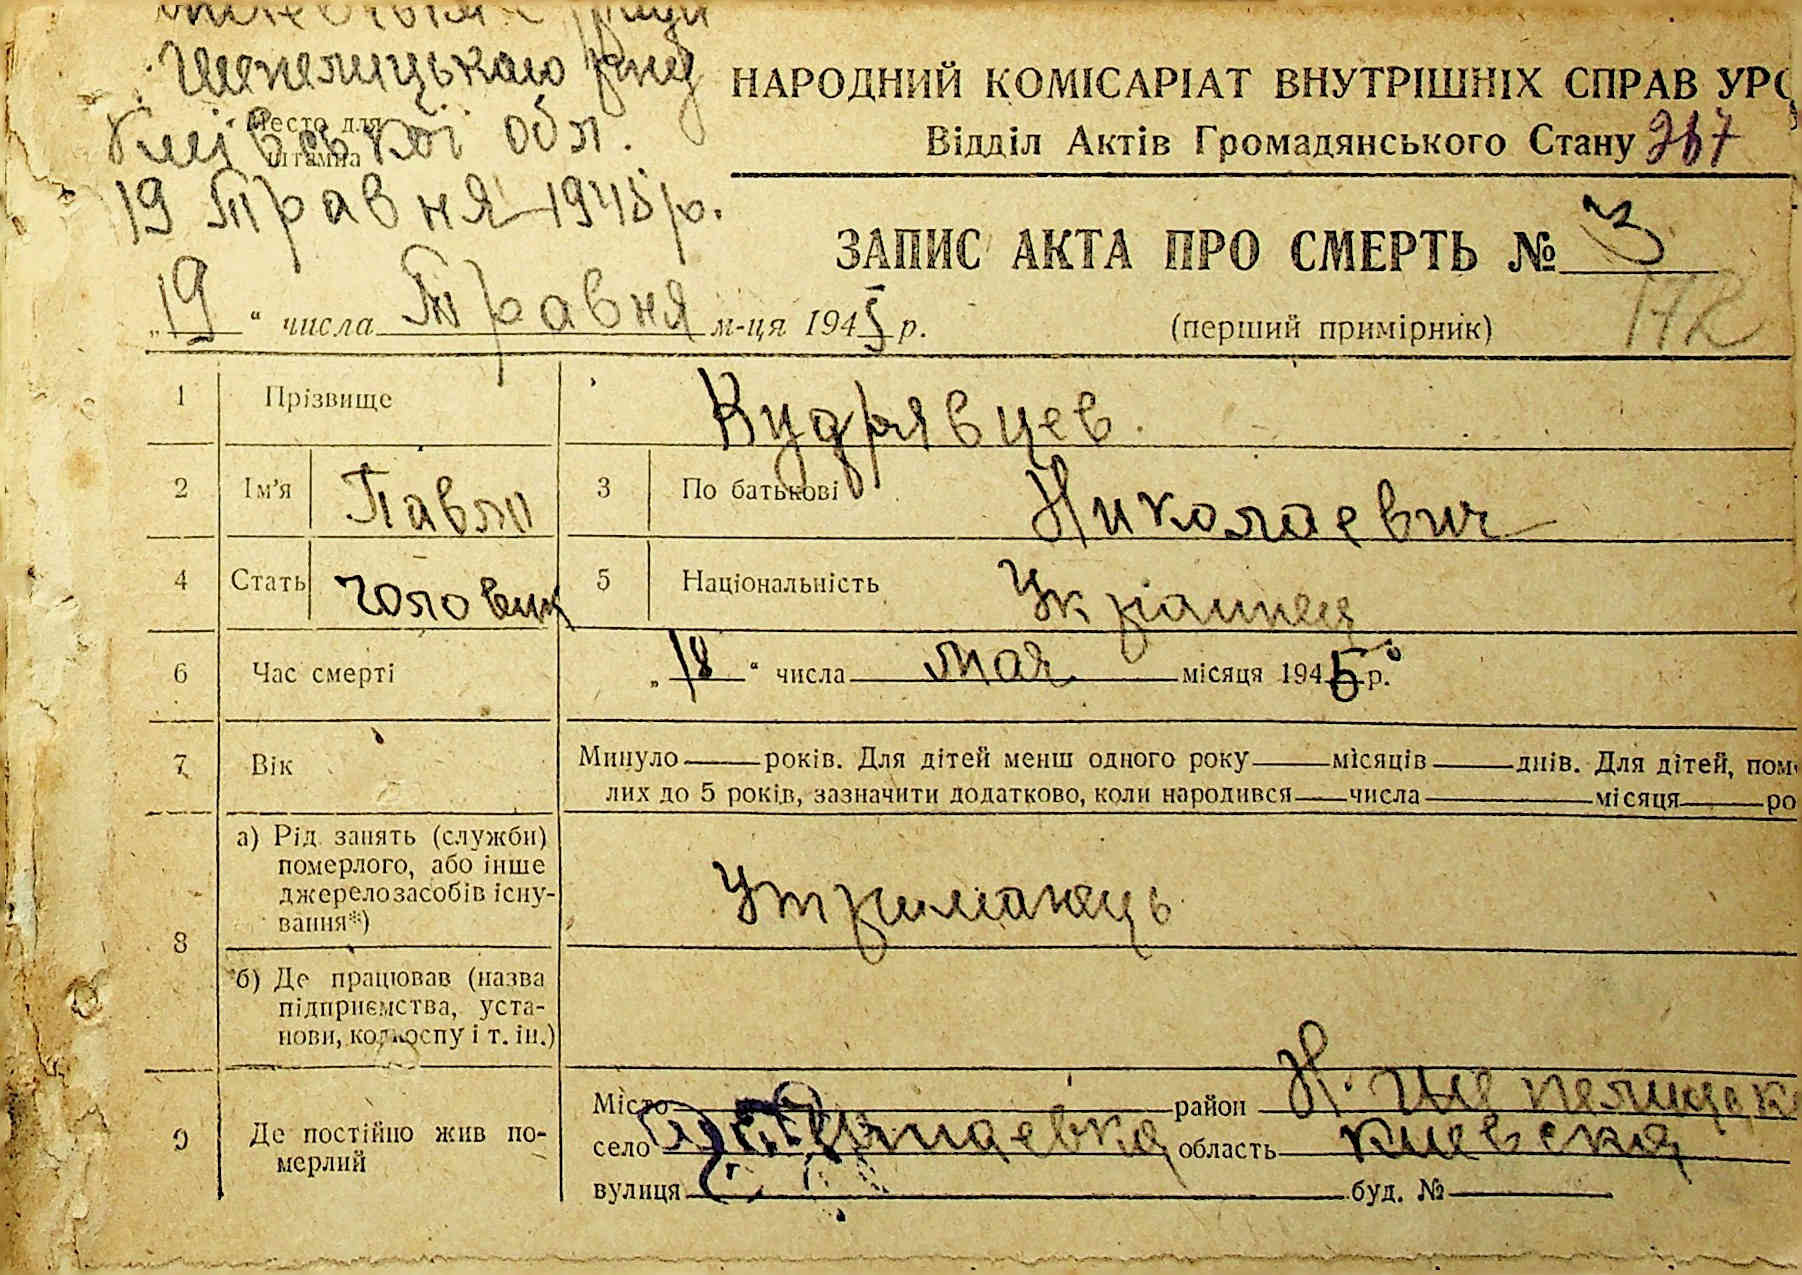 Шепелицького р-ну
Київської обл.
Место для
штампа
19 Травня 1945 р.
НАРОДНИЙ КОМІСАРІАТ ВНУТРІШНІХ СПРАВ УРС
Відділ Актів Громадянського Стану 267
ЗАПИС АКТА ПРО СМЕРТЬ № 3
„19“ числа Травня м-ця 1945 р.
(перший примірник) 172
1 Прізвище Кудрявцев.
2 Ім'я Павло 3 По батькові Николаевич
4 Стать чоловик 5 Національність Українец
6 Час смерті „18“ числа мая місяця 1945 р.
7 Вік Минуло ___ років. Для дітей менш одного року ___ місяців ___ днів. Для дітей, пом
лих до 5 років, зазначити додатково, коли народився ___ числа ___ місяця ___ ро
8 а) Рід занять (служби)
померлого, або інше
джерело засобів існу-
вання*)
Утриманець
б) Де працював (назва
підприємства, уста-
нови, колгоспу і т. ін.)
9 Де постійно жив по-
мерлий
Місто ___ район Н. Шепелицк
село область Киевская
вулиця ___ буд. № ___